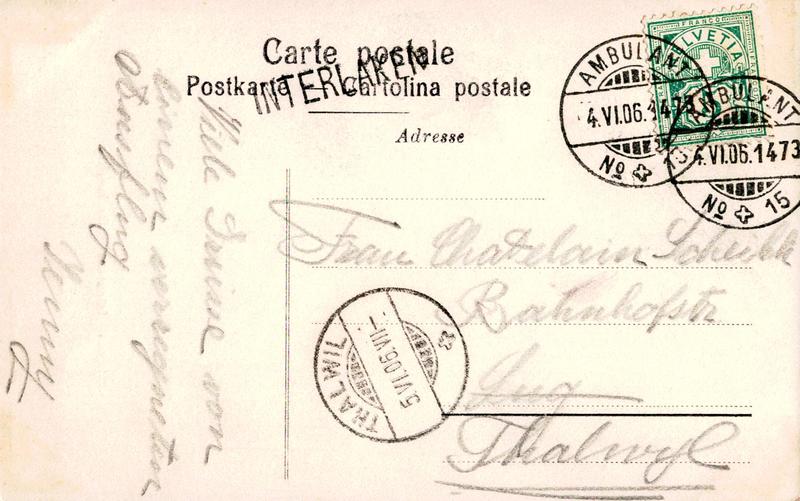 Carte postale
Postkarte — Cartolina postale
INTERLAKEN
Adresse
FRANCO
HELVETIA
AMBULANT
4.VI.06.1473
No 15
AMBULANT
4.VI.06.1473
No 15
Frau Chatelain
Bahnhofstr
Zug
Thalwyl
THALWIL
5.VI.06.VII-
Viele Grüsse von
einem verregneten
Ausflug